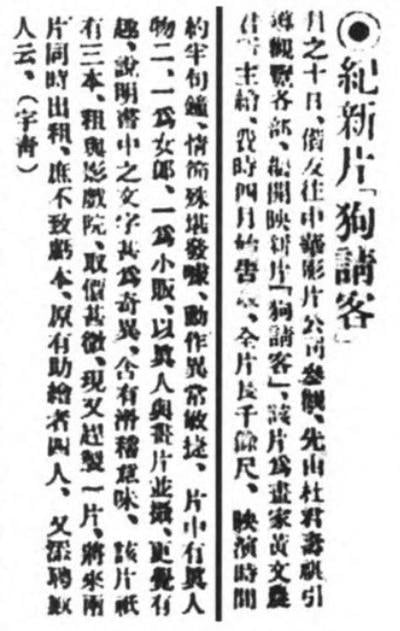 ◉紀新片「狗請客」
月之十日、偕友往中華影片公司參觀、先由杜君壽祺引
導觀覽各部、開映新片「狗請客」、該片爲畫家黃文農
君主繪、費時四月始告、全片長千餘尺、映演時間
約半句鐘、情節殊堪發噱、動作異常敏捷、片中有眞人
物二、一爲女郎、一爲小販、以眞人與畫片並攝、更覺有
趣、說明書中之文字甚爲奇異、含有滑稽意味、該片祇
有三本、租與影戲院、取價甚微、現又趕製一片、將來兩
片同時出租、庶不致虧本、原有助繪者四人、又添聘數
人云、（宇靑）